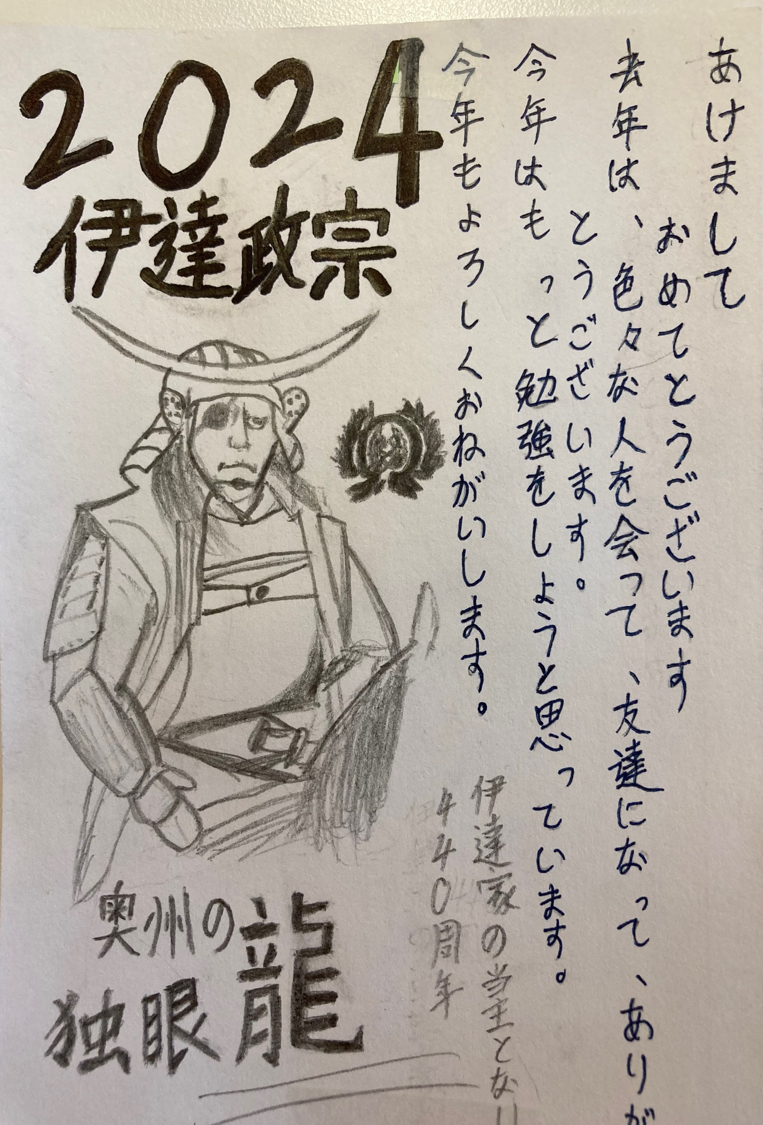 あけまして
おめてとうございます
去年は、色々な人を会って、友達になって、ありが
とうございます。
今年はもっと勉強をしようと思っています。
今年もよろしくおねがいします。
2024
伊達政宗
伊達家の当主となり
440周年
奥州の
独眼龍